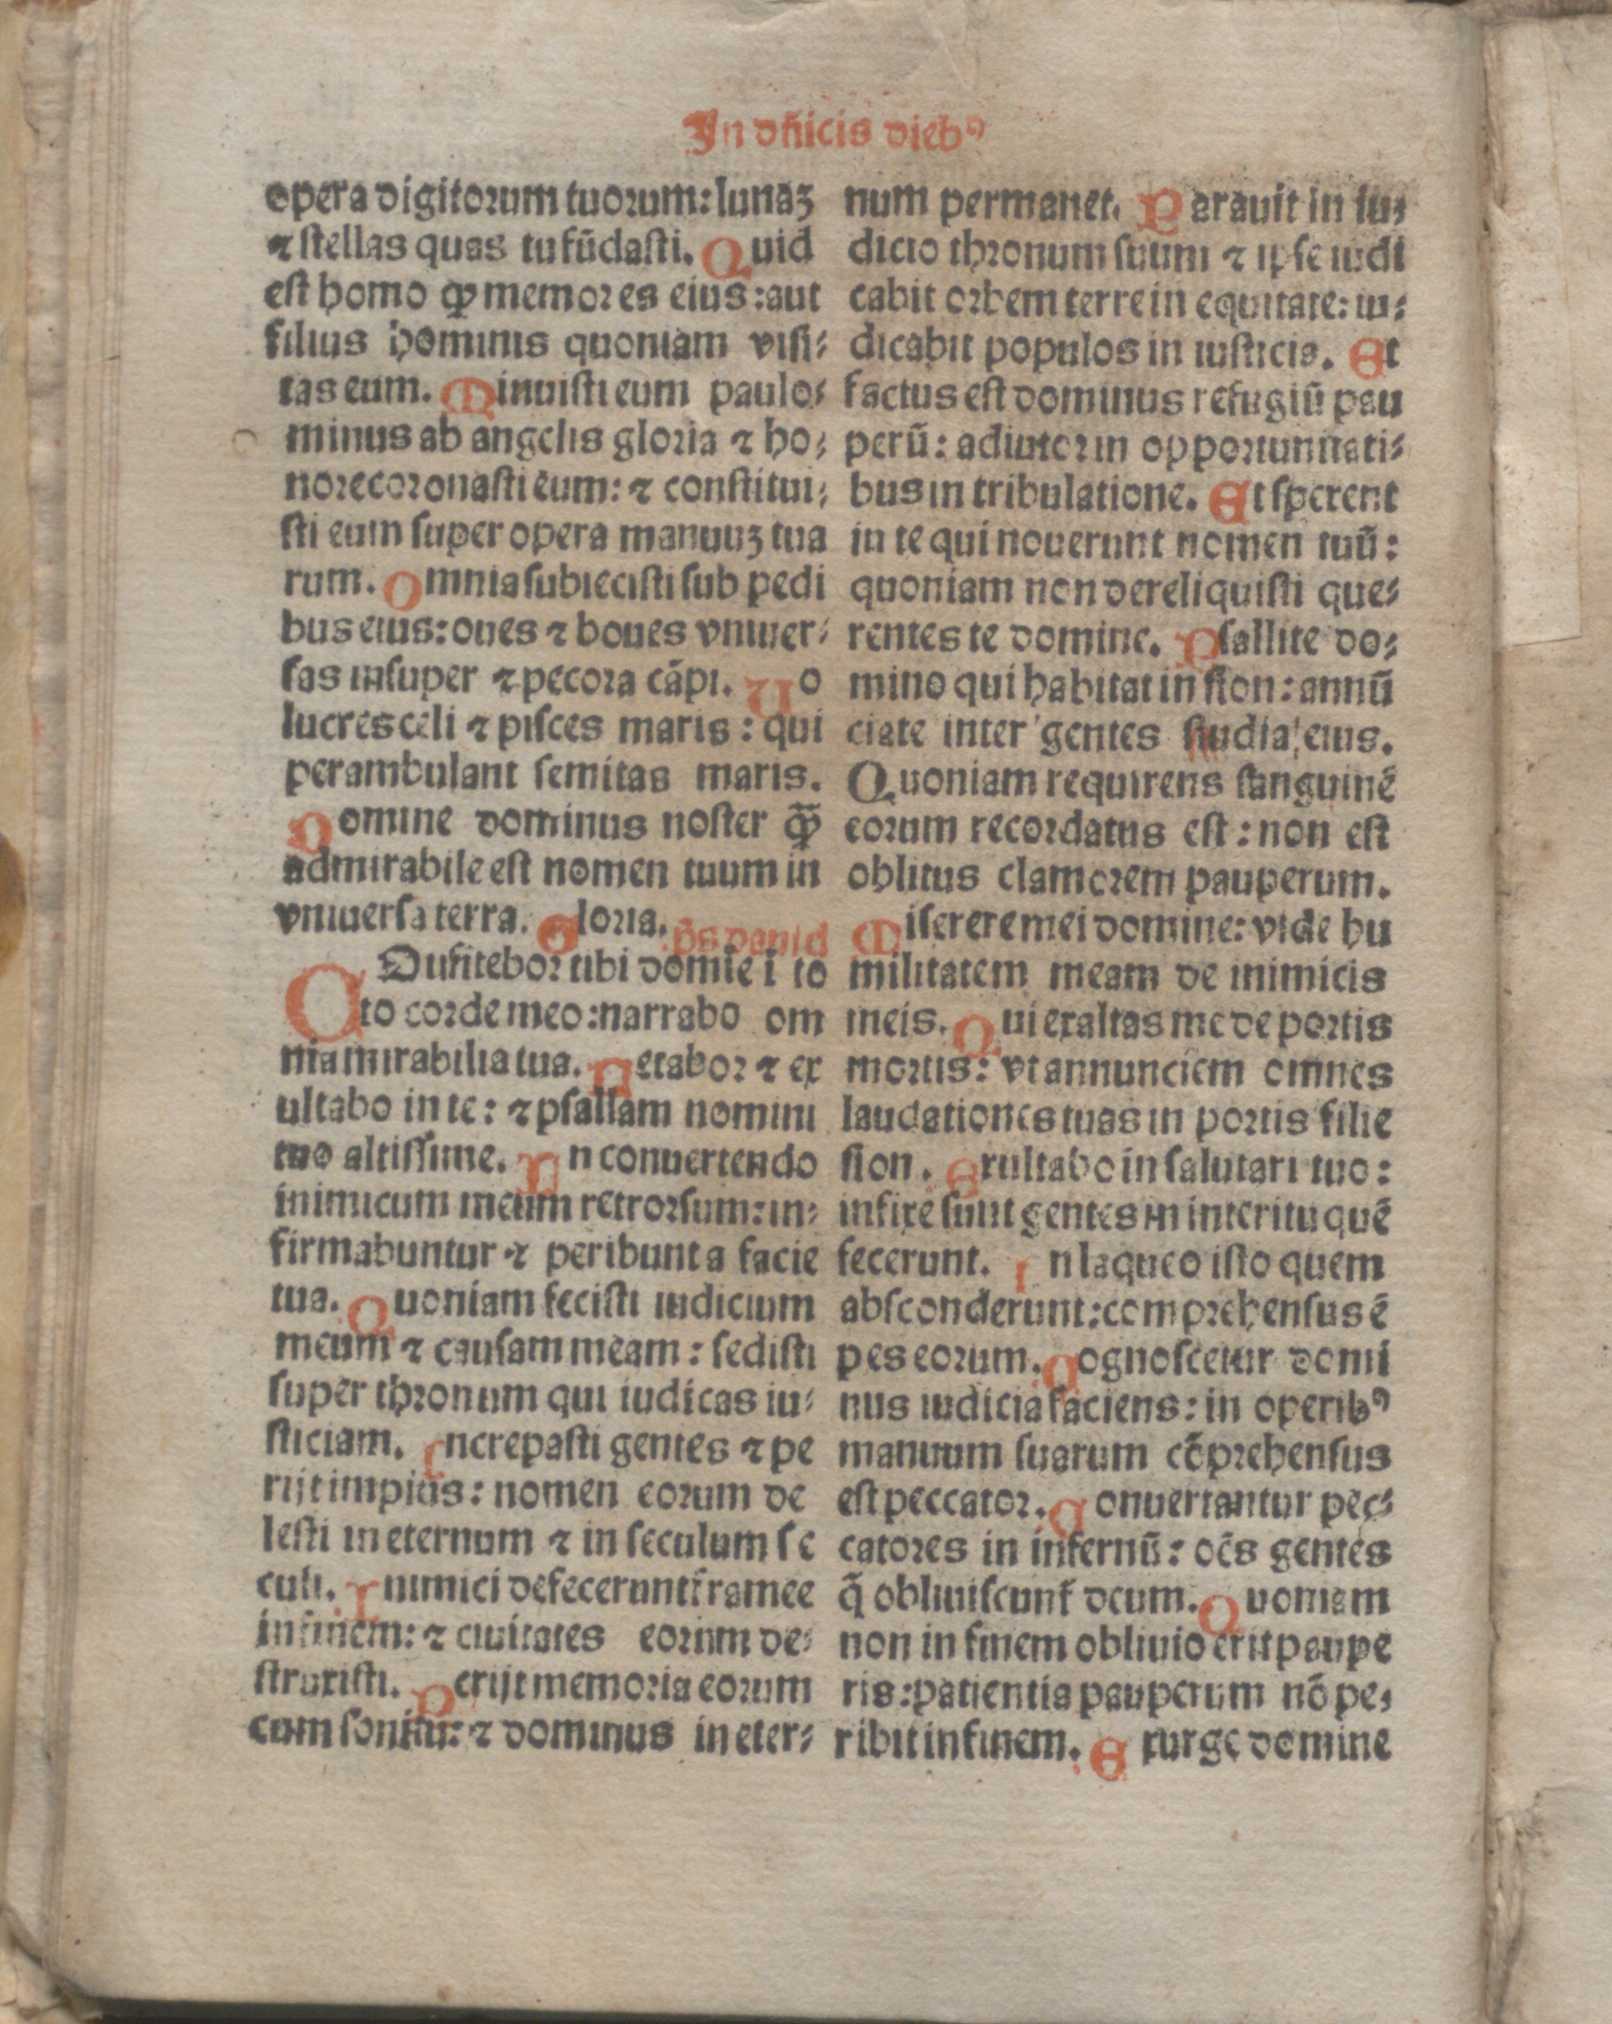 In dn̄icis diebꝰ
opera digitorum tuorum: lunaꝫ
⁊ stellas quas tu fūdasti. Quid
est homo ꝙ memor es eius: aut
filius hominis quoniam visi⸗
tas eum. Minuisti eum paulo⸗
minus ab angelis gloria ⁊ ho⸗
nore coronasti eum: ⁊ constitui⸗
sti eum super opera manuuꝫ tua
rum. Omnia subiecisti sub pedi
bus eius: oues ⁊ boues vniuer⸗
sas insuper ⁊ pecora cāpi. Uo
lucres celi ⁊ pisces maris: qui
perambulant semitas maris.
Domine dominus noster ꝙ̄
admirabile est nomen tuum in
vniuersa terra. Gloria. p̄s dauid
COnfitebor tibi domīe ī to
to corde meo: narrabo om
nia mirabilia tua. Letabor ⁊ ex
ultabo in te: ⁊ psallam nomini
tuo altissime. In conuertendo
inimicum meum retrorsum: in⸗
firmabuntur ⁊ peribunt a facie
tua. Quoniam fecisti iudicium
meum ⁊ causam meam: sedisti
super thronum qui iudicas iu⸗
sticiam. Increpasti gentes ⁊ pe
rijt impius: nomen eorum de
lesti in eternum ⁊ in seculum se
culi. Inimici defecerunt framee
in finem: ⁊ ciuitates eorum de⸗
struxisti. Perijt memoria eorum
cum sonitu: ⁊ dominus in eter⸗
num permanet. Parauit in iu⸗
dicio thronum suum ⁊ ipse iudi
cabit orbem terre in equitate: iu⸗
dicabit populos in iusticia. Et
factus est dominus refugiū pau
perū: adiutor in opportunitati⸗
bus in tribulatione. Et sperent
in te qui nouerunt nomen tuū:
quoniam non dereliquisti que⸗
rentes te domine. Psallite do⸗
mino qui habitat in sion: annū
ciate inter gentes studia eius.
Quoniam requirens sanguinē
eorum recordatus est: non est
oblitus clamorem pauperum.
Miserere mei domine: vide hu
militatem meam de inimicis
meis. Qui exaltas me de portis
mortis: vt annunciem omnes
laudationes tuas in portis filie
sion. Exultabo in salutari tuo:
infixe sunt gentes in interitu quē
fecerunt. In laqueo isto quem
absconderunt: comprehensus ē
pes eorum. Cognoscetur domi
nus iudicia faciens: in operibꝰ
manuum suarum cōprehensus
est peccator. Conuertantur pec⸗
catores in infernū: oēs gentes
q̄ obliuiscunt᷑ deum. Quoniam
non in finem obliuio erit paupe
ris: patientia pauperum nō pe⸗
ribit in finem. Exurge domine